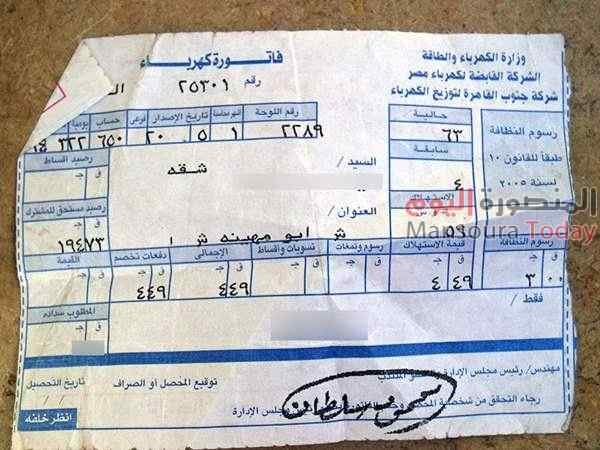 وزارة الكهرباء والطاقة
الشركة القابضة لكهرباء مصر
شركة جنوب القاهرة لتوزيع الكهرباء
فاتورة كهرباء
رقم ٢٥٣٠١
رسوم النظافة
طبقاً للقانون ١٠
لسنة ٢٠٠٥
حالية
٦٣
سابقة
٤
الاستهلاك
٥٩
رقم اللوحة
٢٢٨٩
١
تاريخ الإصدار
٥
فرعي
٢٠
حساب
٦٥٠
يومية
٣٢٢
السيد /
شقه
العنوان /
ش ابو مهينه ش ١
رصيد أقساط
ق ج
رصيد مستحق للمشترك
ق ج
١٩٤٧٣
المنصورة اليوم
Mansoura Today
رسوم النظافة
قيمة الاستهلاك
رسوم ودمغات
تسويات وأقساط
الإجمالي
دفعات تخصم
القيمة
ق ج ق ج ق ج ق ج ق ج ق ج ق ج
٣ ٠٠
٤ ٤٩
٤٤٩
٤٤٩
فقط /
المطلوب سداده
ق ج
مهندس/ رئيس مجلس الإدارة
رجاء التحقق من شخصية
مجلس الإدارة
توقيع المحصل أو الصراف
تاريخ التحصيل
/ /
انظر خلفه